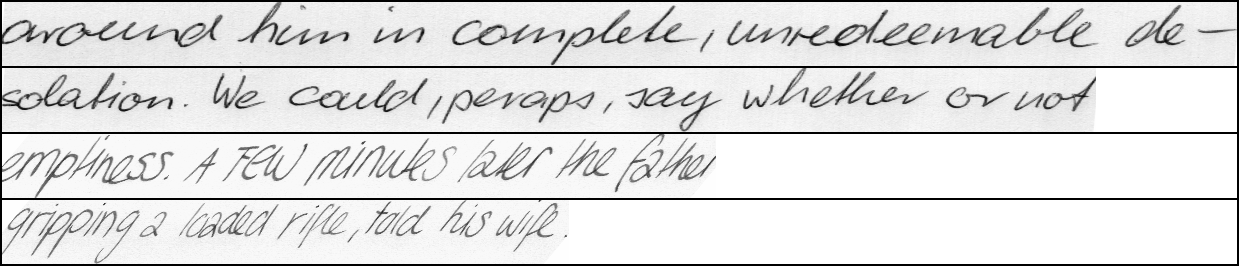 around him in complete, unredeemable de-
solation. We could, peraps, say whether or not
emptiness. A FEW minutes later the father
gripping a loaded rifle, told his wife.